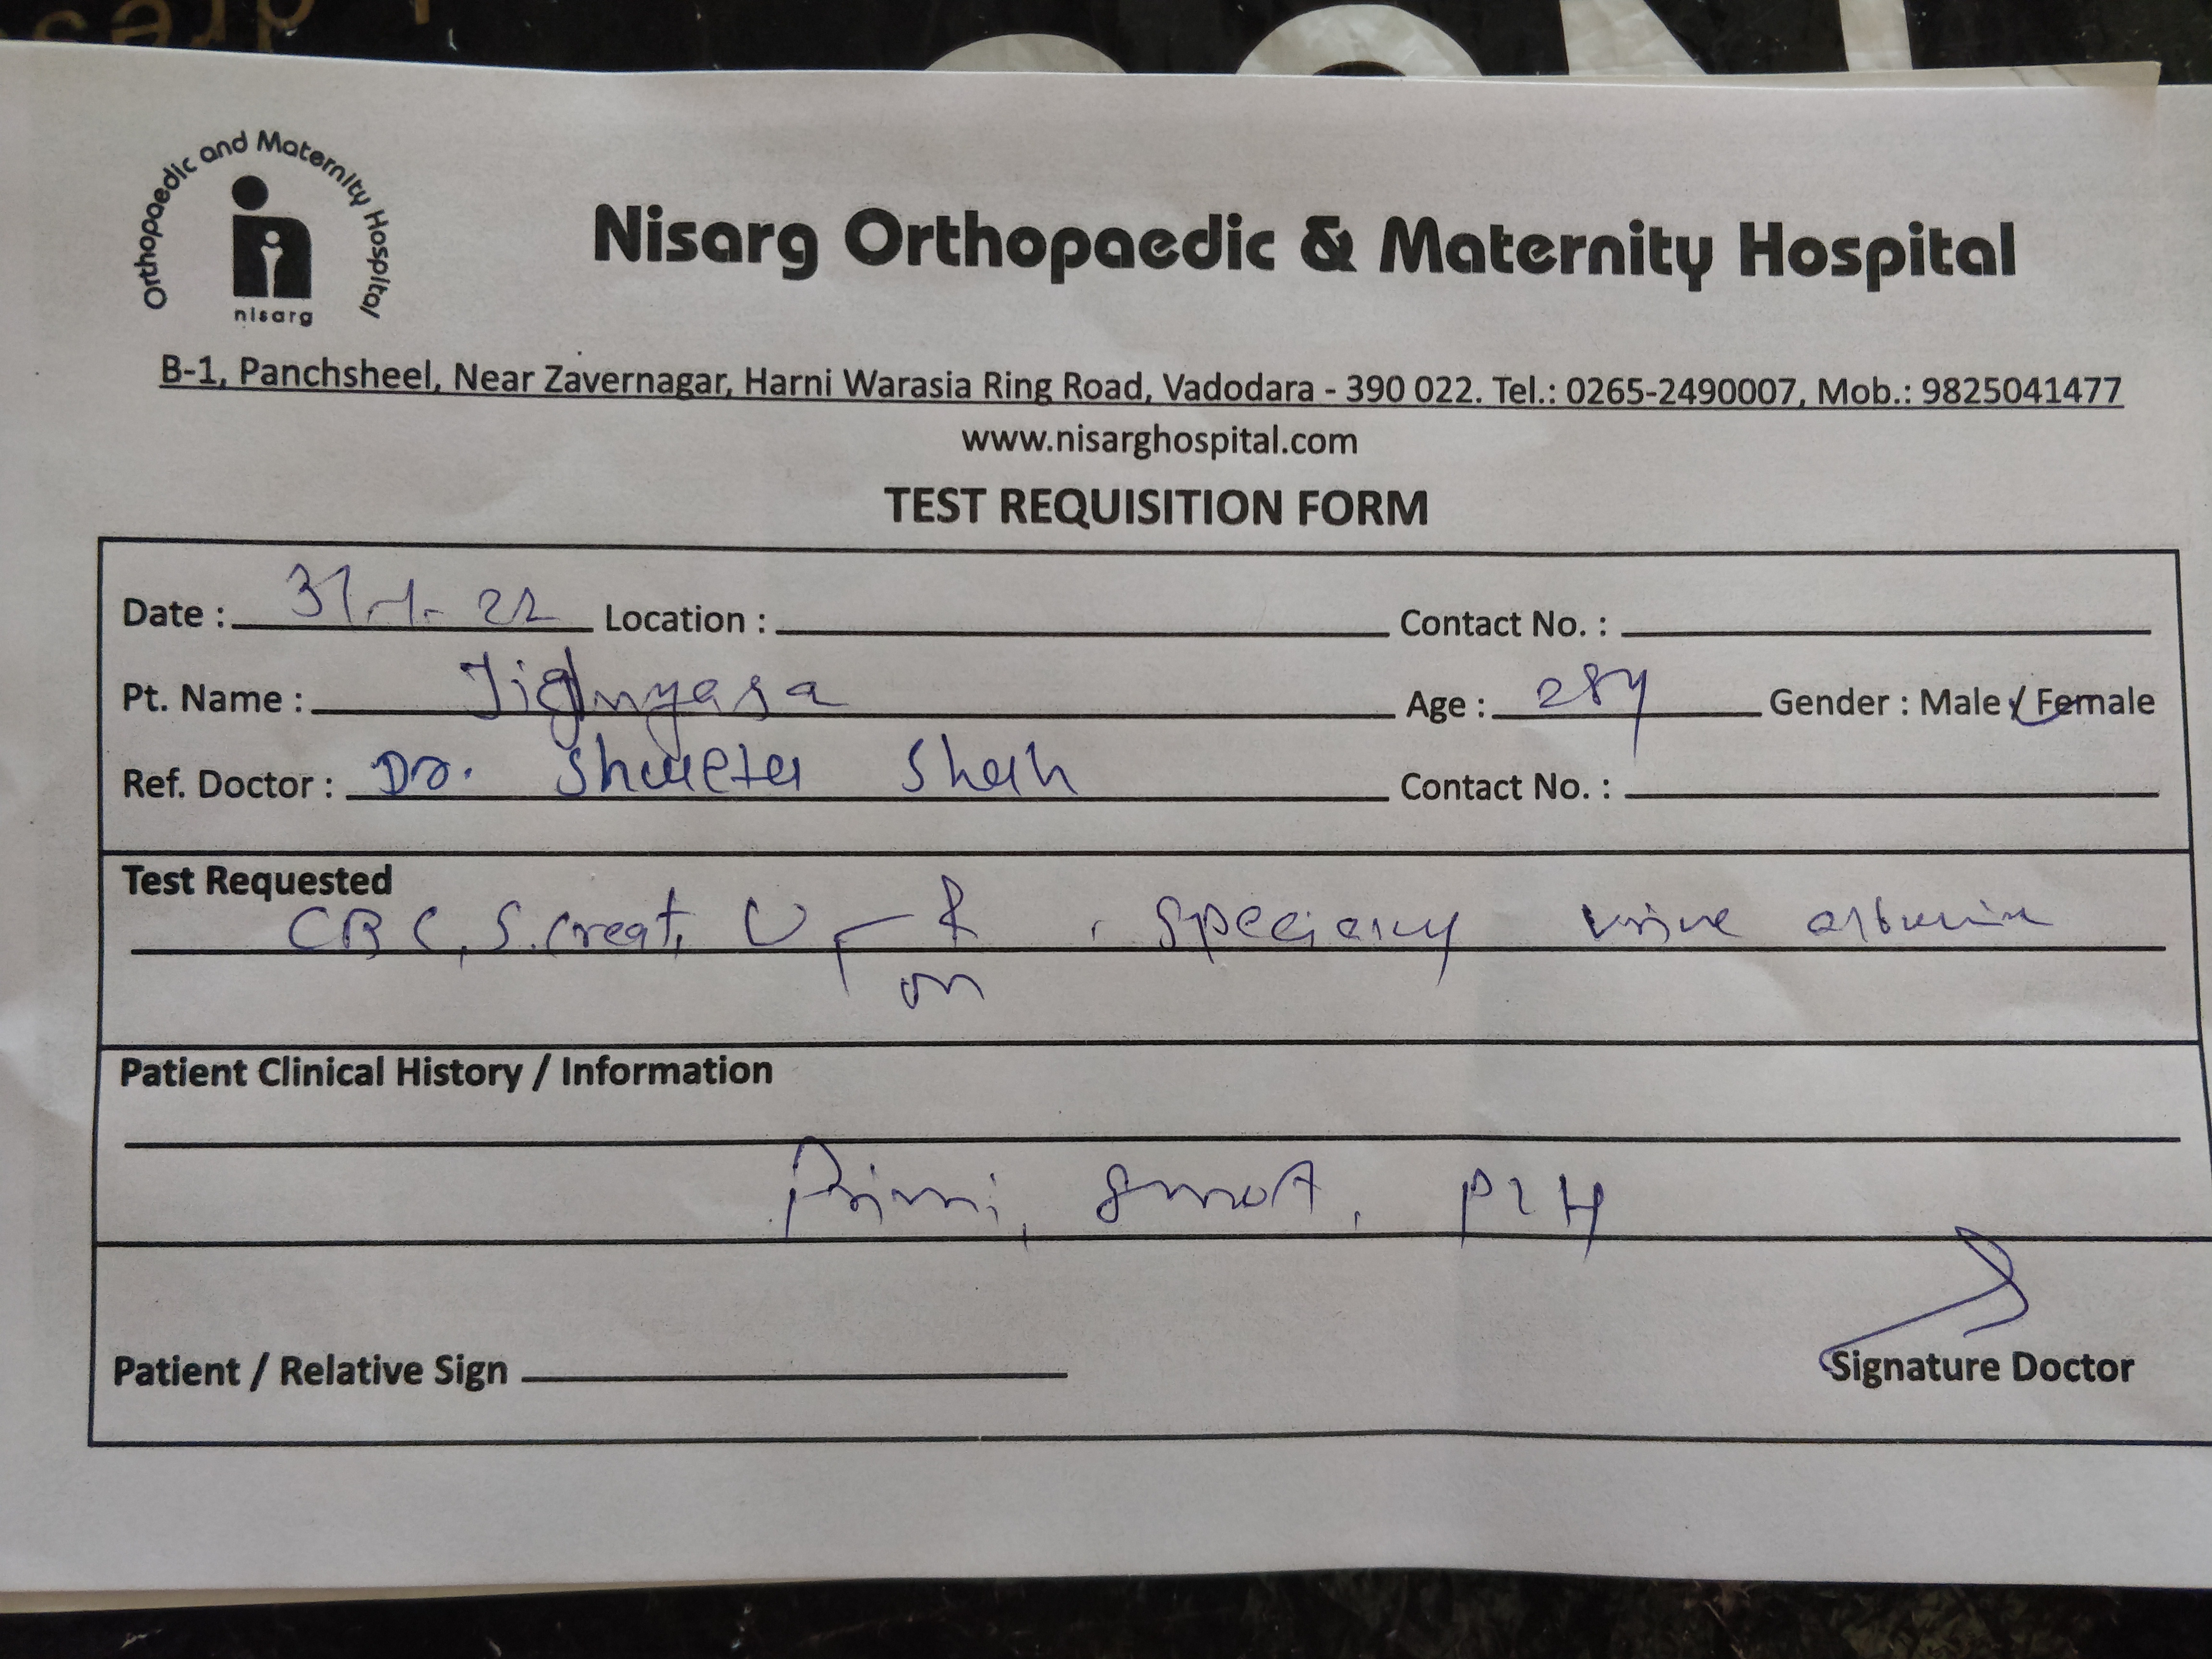 Orthopaedic and Maternity Hospital
nisarg
Nisarg Orthopaedic & Maternity Hospital
B-1, Panchsheel, Near Zavernagar, Harni Warasia Ring Road, Vadodara - 390 022. Tel.: 0265-2490007, Mob.: 9825041477
www.nisarghospital.com
TEST REQUISITION FORM
Date : 31-1-22 Location : Contact No. :
Pt. Name : Jighnyasa Age : 28y Gender : Male / Female
Ref. Doctor : Dr. Shweta Shah Contact No. :
Test Requested
CBC, S.Creat, U R , specially urine albumin
m
Patient Clinical History / Information
Primi, PIH
Patient / Relative Sign Signature Doctor